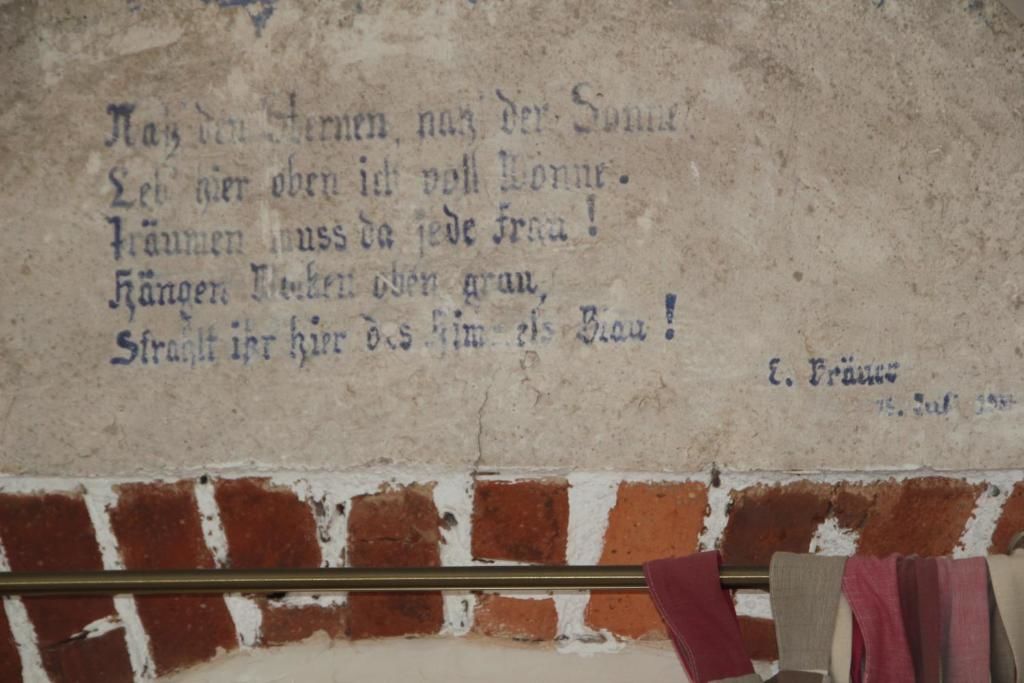 Nah den Sternen, nah der Sonne
Leb' hier oben ich voll Wonne.
Träumen muss da jede Frau!
Hängen Wolken oben grau,
Strahlt ihr hier des Himmels Blau!
E. Bräuer
Juli